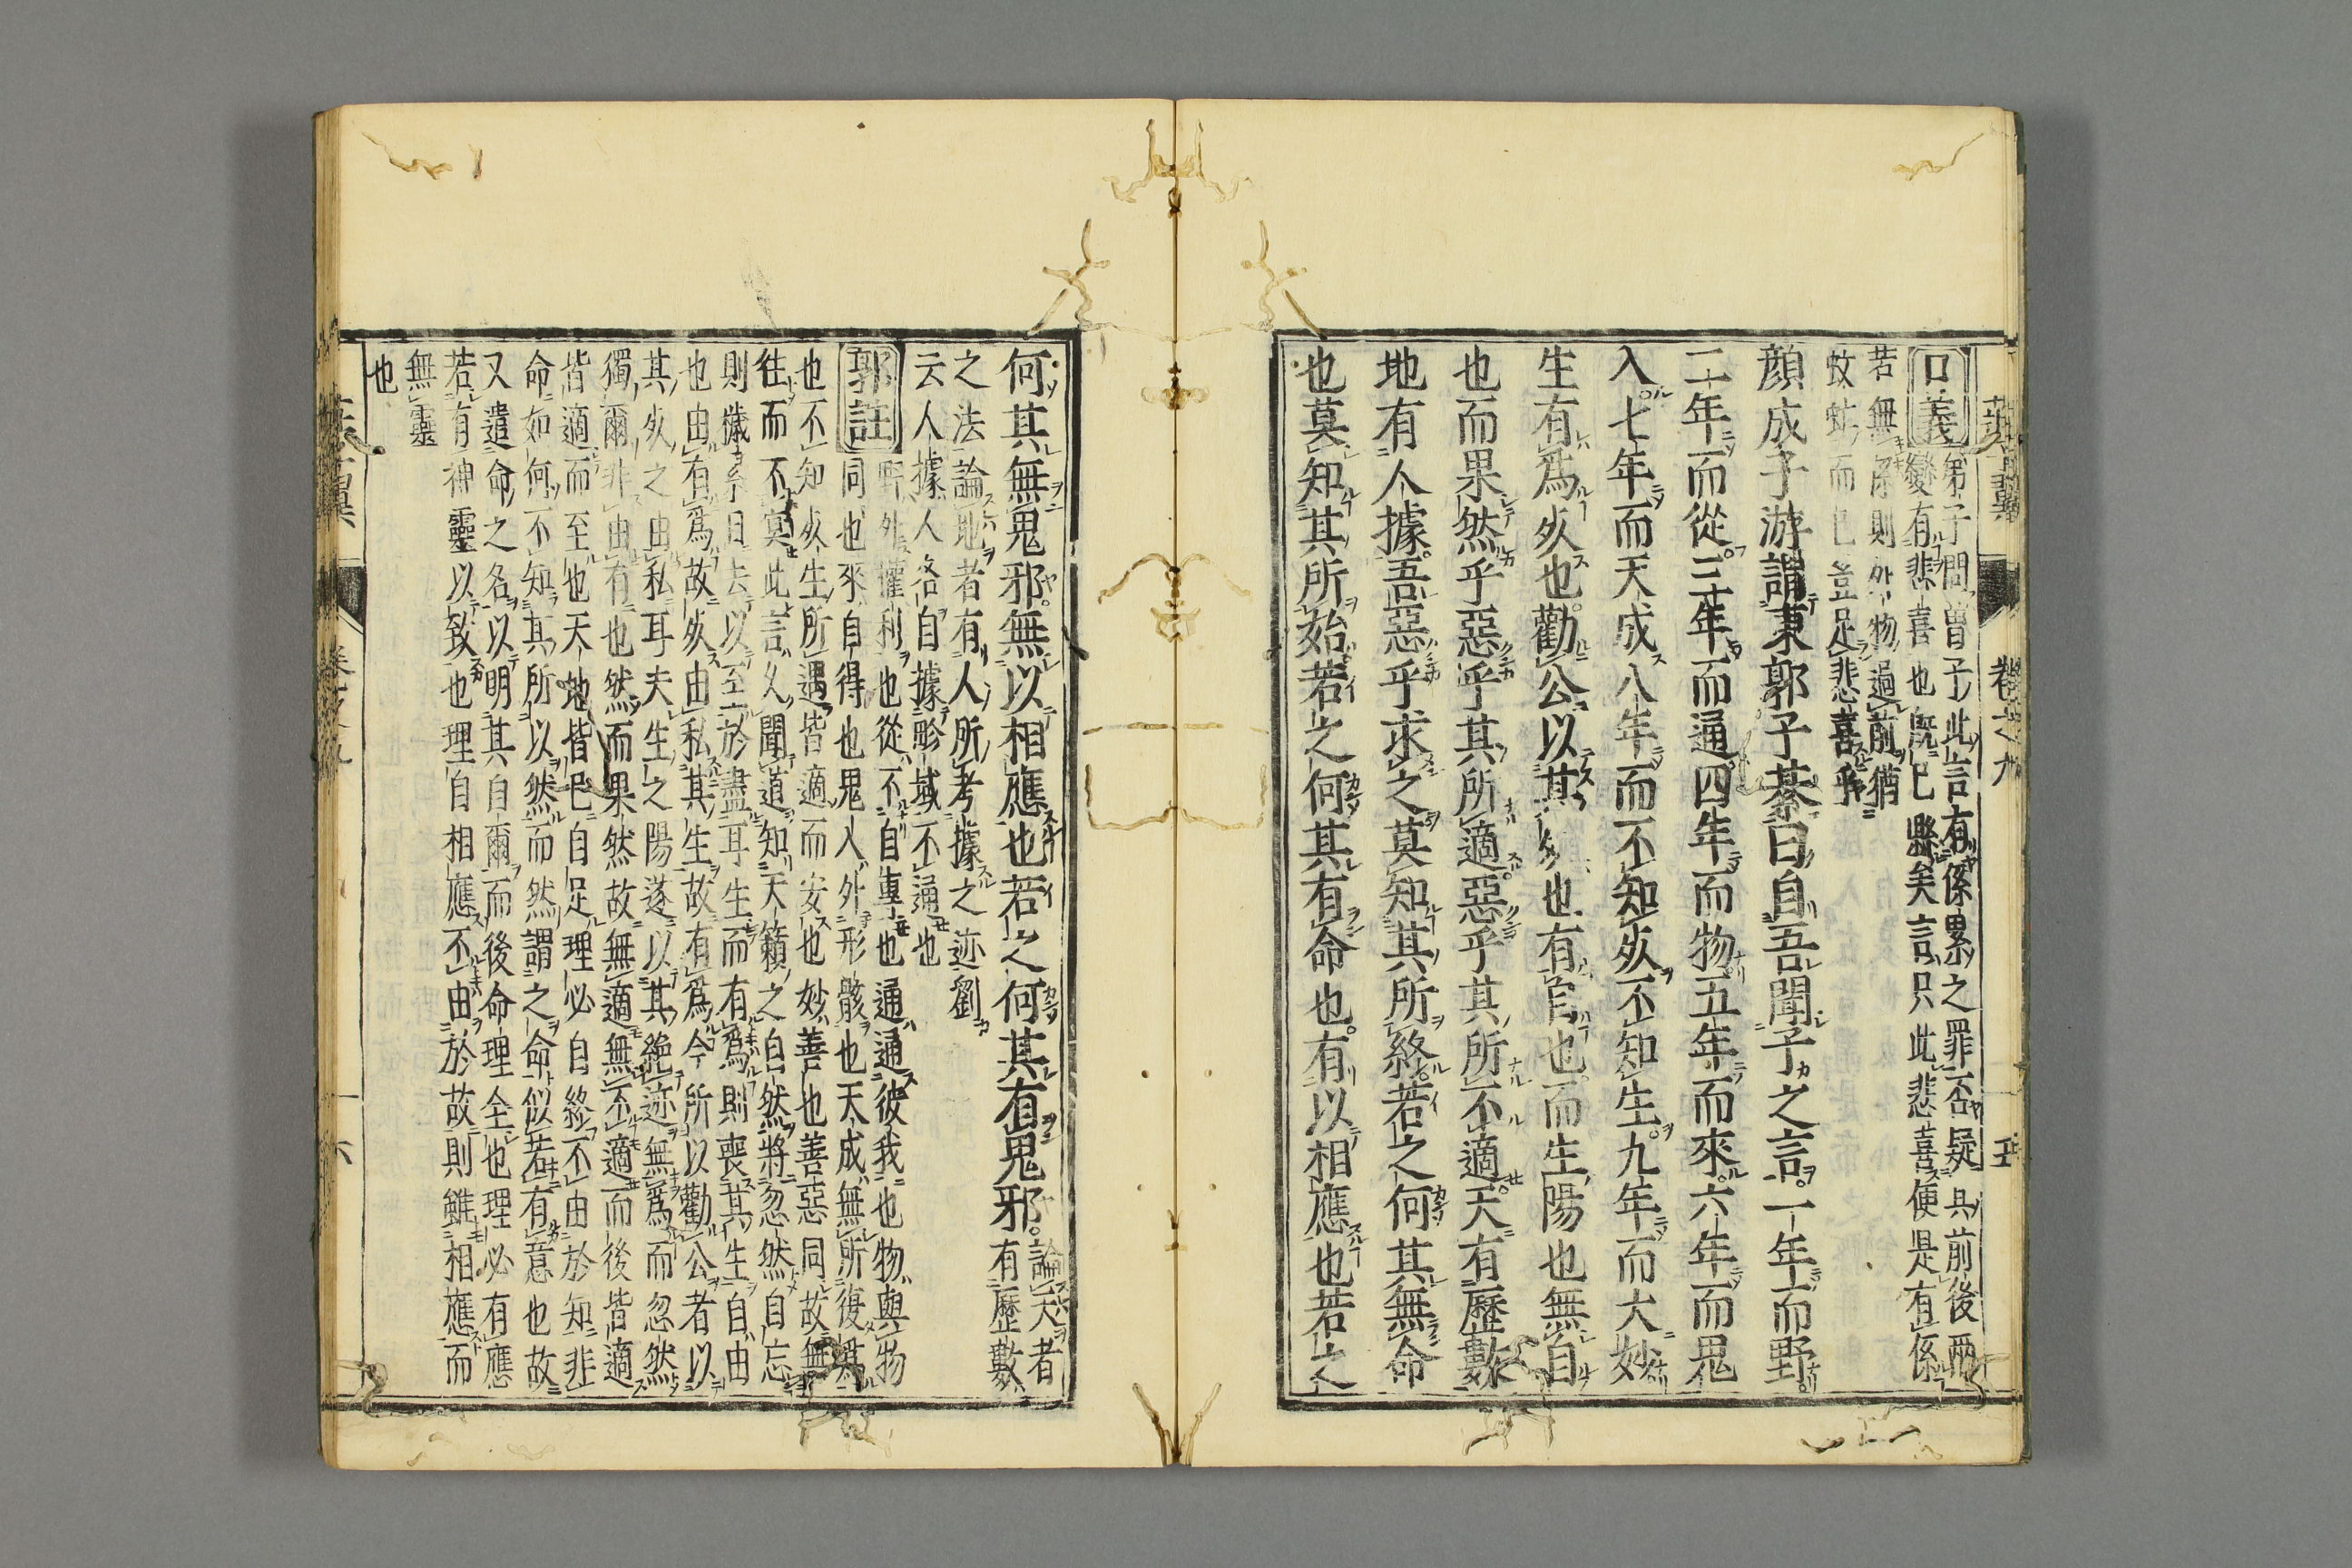 口義 第子問曽子此言有係累之罪否疑其前後兩
變有悲喜也既已縣矣言只此悲喜便是有係
若無係則外物過前猶
蚊虻而已豈足悲喜乎
顔成子游謂東郭子綦曰自吾聞子之言一年而野
二年而從三年而通四年而物五年而來六年而鬼
入七年而天成八年而不知死不知生九年而大妙
生有爲死也勸公以其死也有自也而生陽也無自
也而果然乎惡乎其所適惡乎其所不適天有歷數
地有人據吾惡乎求之莫知其所終若之何其無命
也莫知其所始若之何其有命也有以相應也若之
何其無鬼邪無以相應也若之何其有鬼邪 論天者
有歷數
之法論地者有人所考據之迹劉
云人據人各自據畛域不通也
郭註 野外權利也從不自專也通通彼我也物與物
同也來自得也鬼入外形骸也天成無所復爲
也不知死生所遇皆適而安也妙善也善惡同故無
往而不冥此言久聞道知天籟之自然將忽然自忘
則穢累日去以至於盡耳生而有爲則喪其生自由
也由有爲故死由私其生故有爲今所以勸公者以
其死之由私耳夫生之陽遂以其絶迹無爲而忽然
獨爾非由有也然而果然故無適無不適而後皆適
皆適而至也天地皆已自足理必自終不由於知非
命如何不知其所以然而然謂之命似若有意也故
又遣命之名以明其自爾而後命理全也理必有應
若有神靈以致也理自相應不由於故則雖相應而
無靈
也
卷之九
五